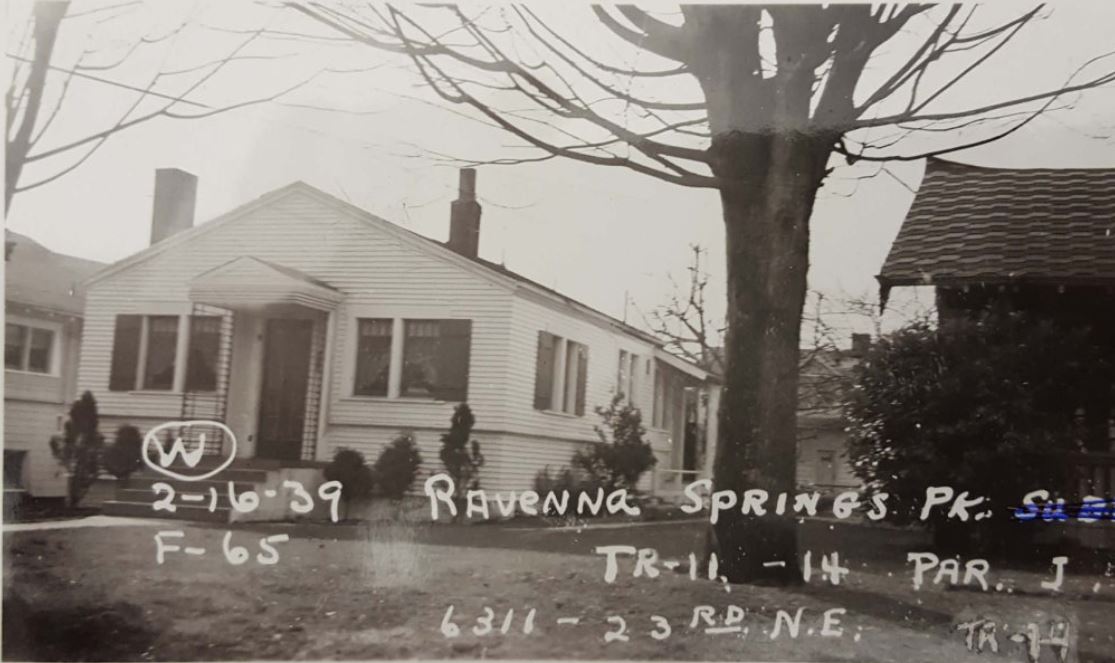 W
2-16-39 RAVENNA SPRINGS PK. SUB
F-65 TR-11, -14 PAR. J
6311 - 23 RD. N.E.
TR-14